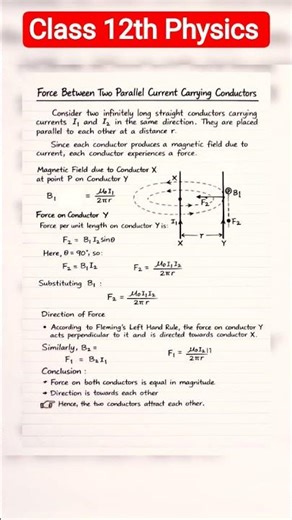 Class 12th Physics
Force Between Two Parallel Current Carrying Conductors
Consider two infinitely long straight conductors carrying
currents I₁ and I₂ in the same direction. They are placed
parallel to each other at a distance r.
Since each conductor produces a magnetic field due to
current, each conductor experiences a force.
Magnetic Field due to Conductor X
at point P on Conductor Y
B₁ = μ₀I₁ / 2πr
Force on Conductor Y
Force per unit length on conductor Y is:
F₂ = B₁ I₂ sinθ
Here, θ = 90°, so:
F₂ = B₁I₂ F₂ = μ₀I₁I₂ / 2πr
Substituting B₁ :
F₂ = μ₀I₁I₂ / 2πr
X
B₁
F₂
I₁
F₂
r
X Y
Direction of Force
• According to Fleming's Left Hand Rule, the force on conductor Y
acts perpendicular to it and is directed towards conductor X.
Similarly, B₂ =
F₁ = B₂I₁ F₁ = μ₀I₂I1 / 2πr
Conclusion :
• Force on both conductors is equal in magnitude
• Direction is towards each other
☞ Hence, the two conductors attract each other.